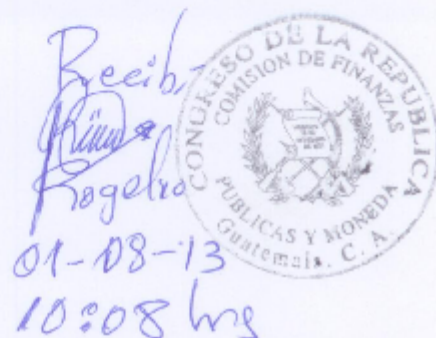 Recibi
Rogelio
01-08-13
10:08 hrs
CONGRESO DE LA REPUBLICA
COMISION DE FINANZAS
PUBLICAS Y MONEDA
Guatemala, C. A.